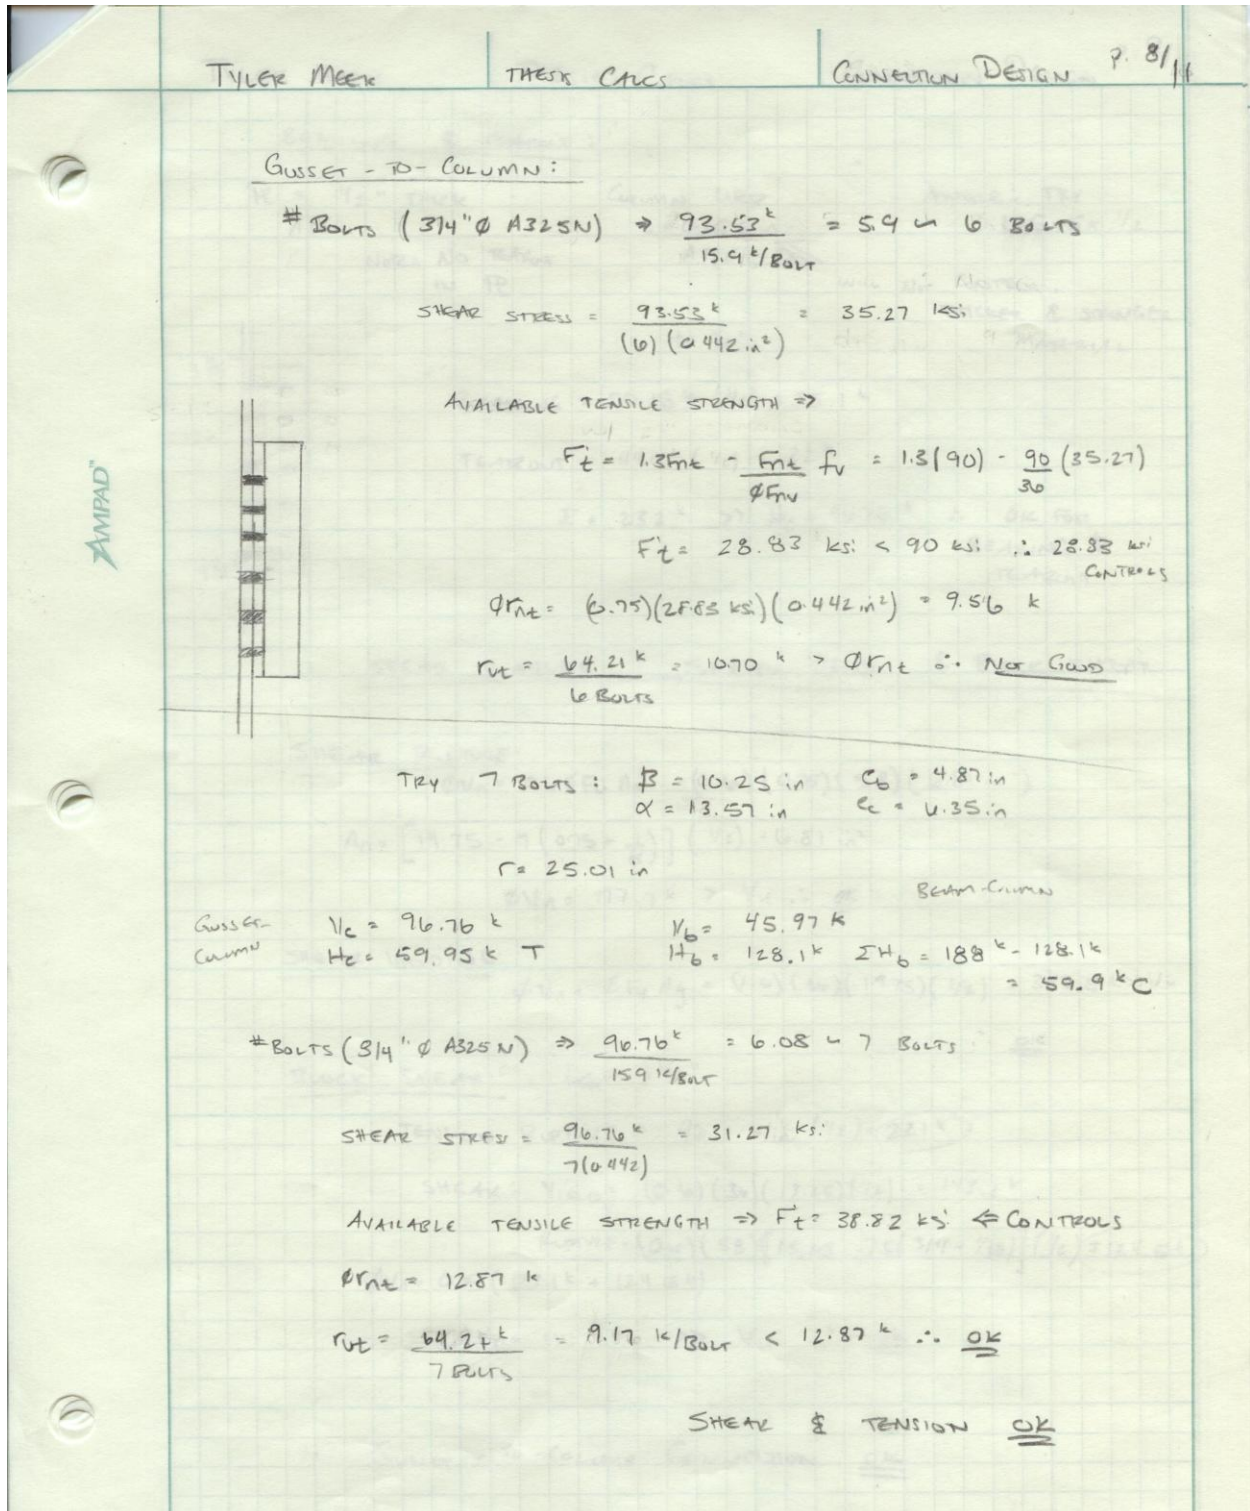 TYLER MEEK THESIS CALCS CONNECTION DESIGN P. 8/11
GUSSET-TO-COLUMN:
# BOLTS (3/4"Ø A325N) ⇒ 93.53k / 15.9 k/BOLT = 5.9 ~ 6 BOLTS
SHEAR STRESS = 93.53k / (6)(0.442 in²) = 35.27 ksi
AVAILABLE TENSILE STRENGTH ⇒
F't = 1.3Fnt - Fnt/ØFnv fv = 1.3(90) - 90/36 (35.27)
F't = 28.83 ksi < 90 ksi ∴ 28.83 ksi
CONTROLS
Ørnt = (0.75)(28.83 ksi)(0.442 in²) = 9.56 k
rut = 64.21k / 6 BOLTS = 10.70 k > Ørnt ∴ NOT GOOD
AMPAD™
TRY 7 BOLTS: β = 10.25 in eb = 4.87 in
α = 13.57 in ec = 6.35 in
r = 25.01 in
BEAM-COLUMN
GUSSET-COLUMN
Vc = 96.76 k Vb = 45.97 k
Hc = 59.95 k T Hb = 128.1k ΣHb = 188k - 128.1k
= 59.9k C
# BOLTS (3/4"Ø A325N) ⇒ 96.76k / 159 k/BOLT = 6.08 ~ 7 BOLTS
SHEAR STRESS = 96.76k / 7(0.442) = 31.27 ksi
AVAILABLE TENSILE STRENGTH ⇒ F't = 38.82 ksi ⇐ CONTROLS
Ørnt = 12.87 k
rut = 64.21k / 7 BOLTS = 9.17 k/BOLT < 12.87 k ∴ OK
SHEAR & TENSION OK